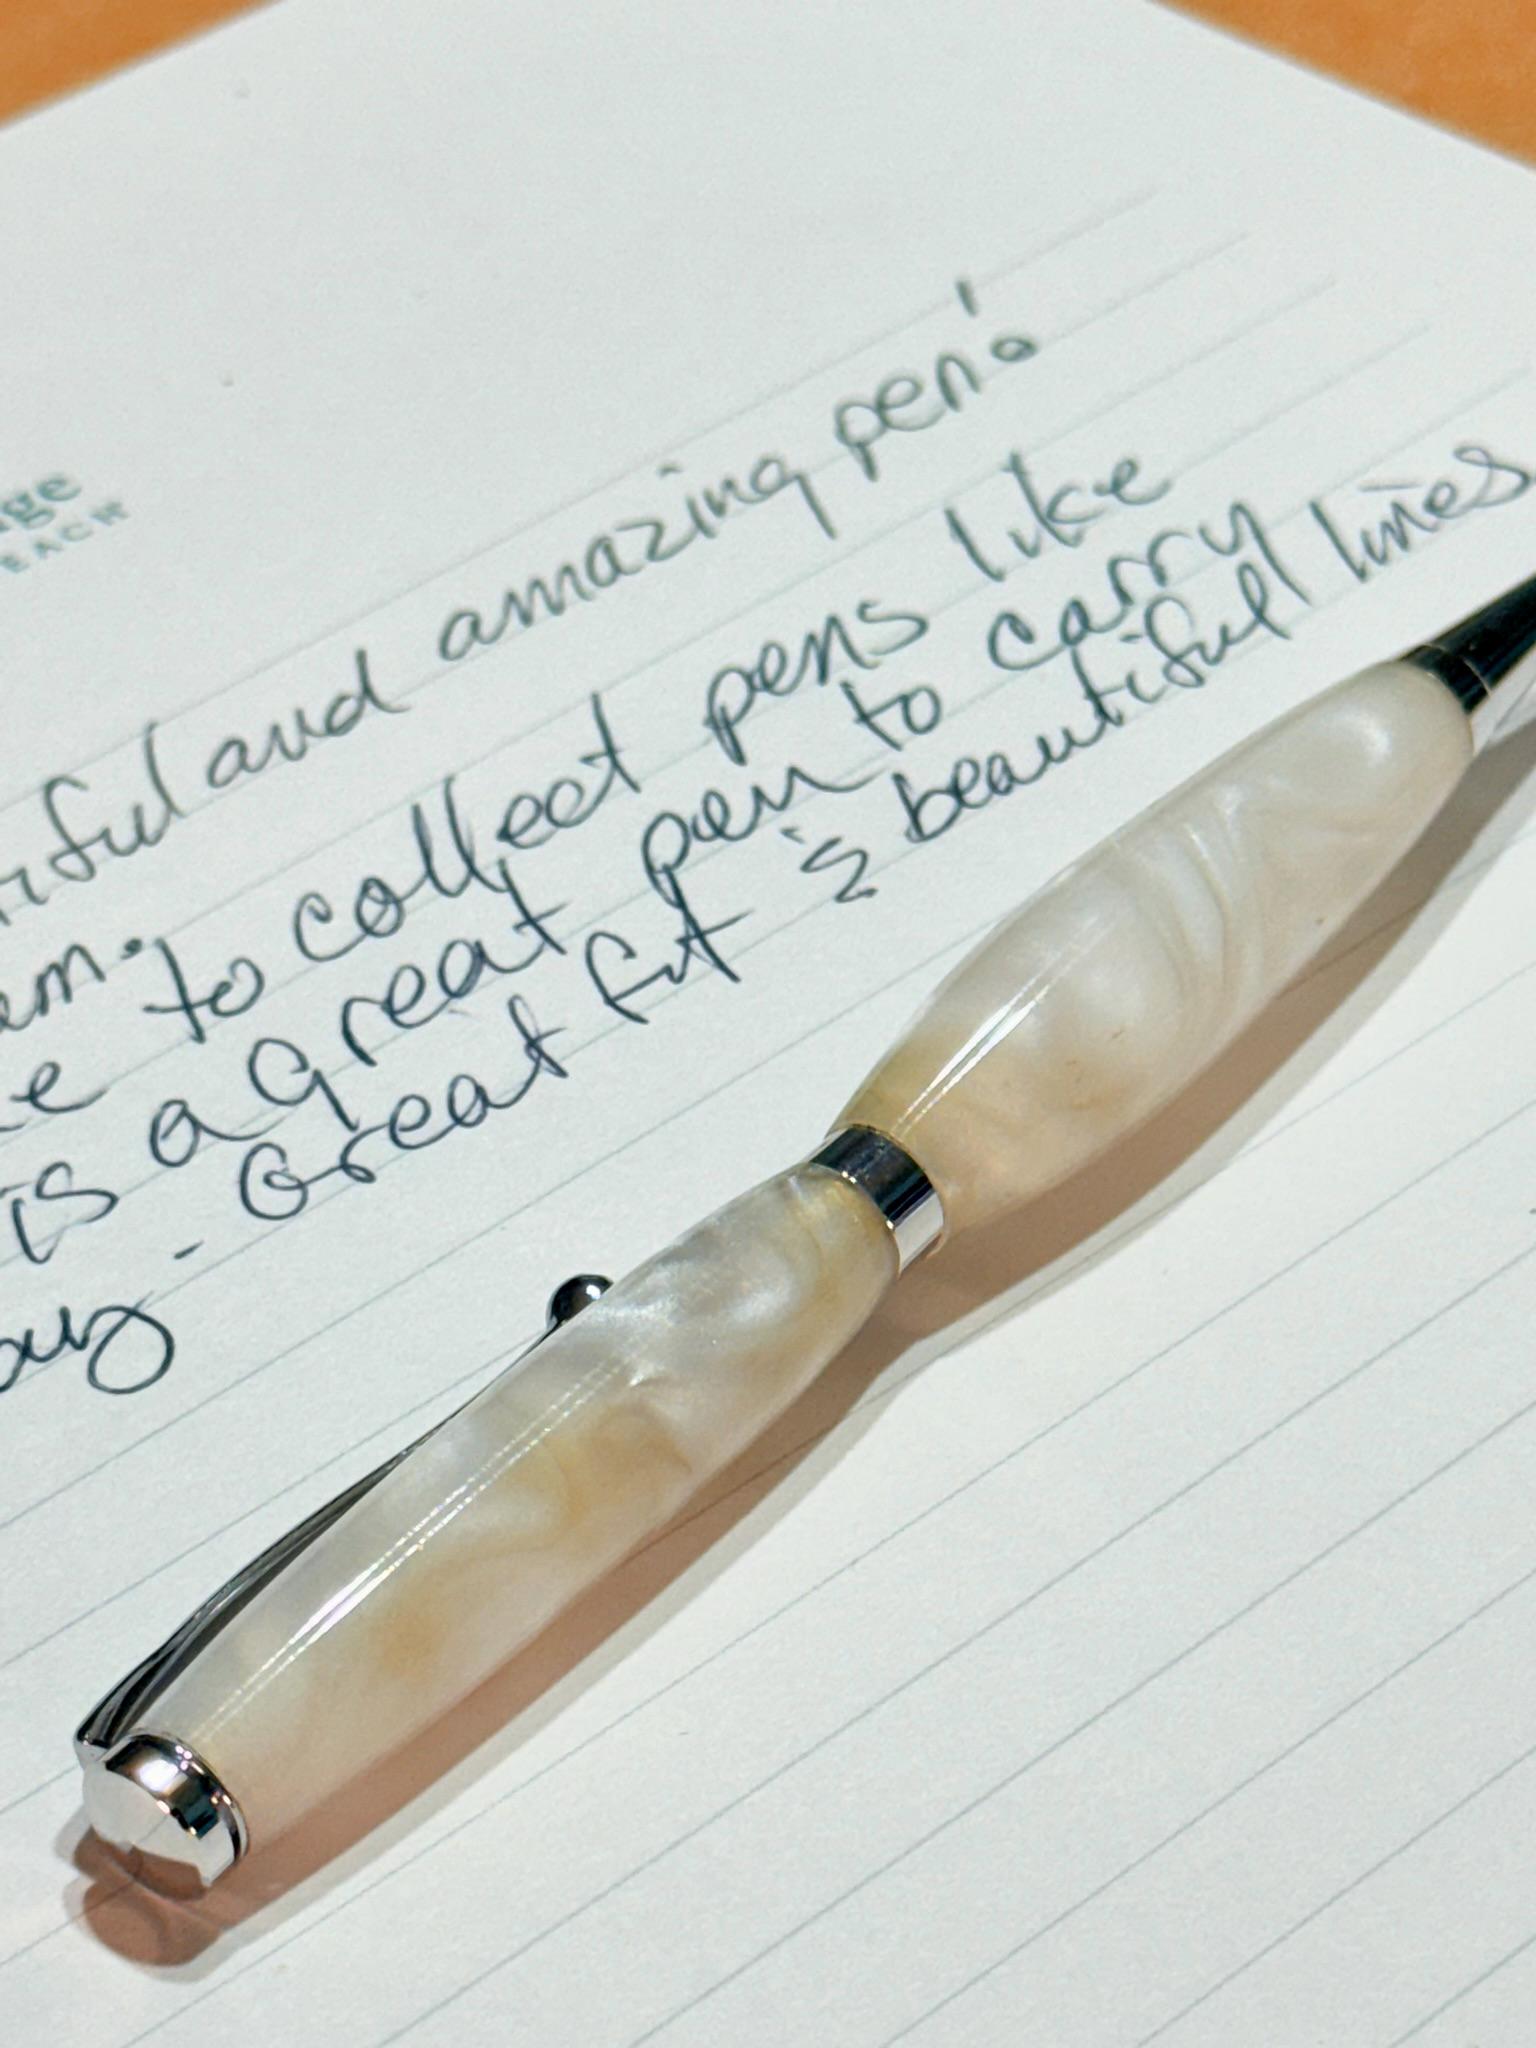 ge
EACH
rful and amazing pen!
em. to collect pens like
e is a great pen to carry
Great fit & beautiful lines